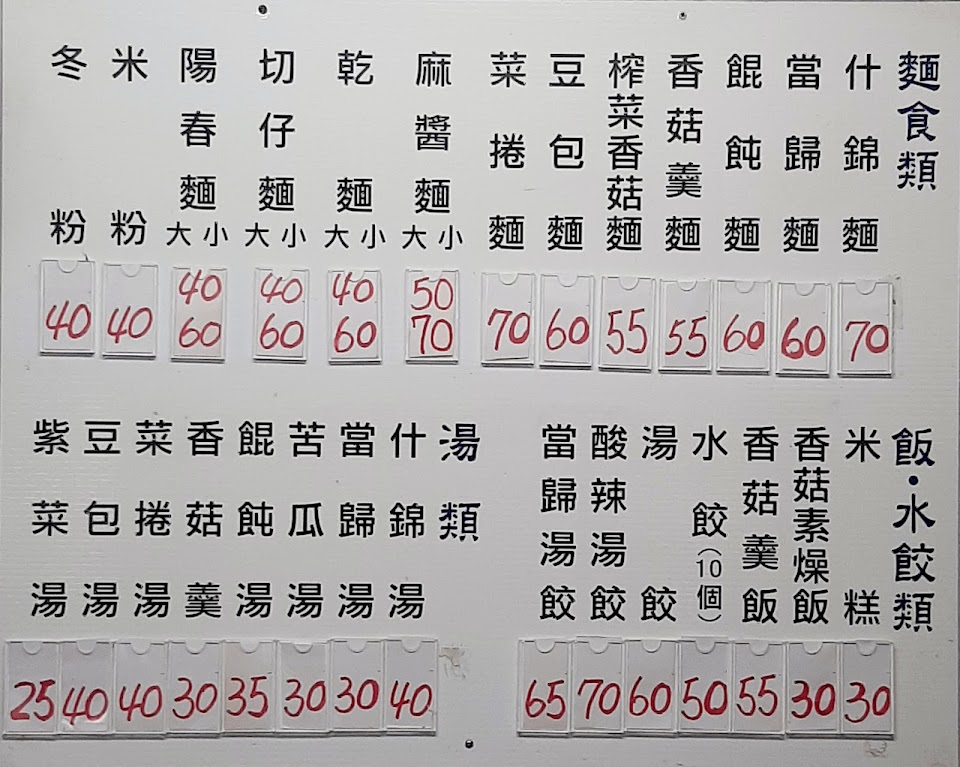 麵食類
什錦麵
70
當歸麵
60
餛飩麵
60
香菇羹麵
55
榨菜香菇麵
55
豆包麵
60
菜捲麵
70
麻醬麵
大 小
50
70
乾麵
大 小
40
60
切仔麵
大 小
40
60
陽春麵
大 小
40
60
米粉
40
冬粉
40
飯・水餃類
米糕
30
香菇素燥飯
30
香菇羹飯
55
水餃(10個)
50
湯餃
60
酸辣湯餃
70
當歸湯餃
65
湯類
什錦湯
40
當歸湯
30
苦瓜湯
30
餛飩湯
35
香菇羹
30
菜捲湯
40
豆包湯
40
紫菜湯
25